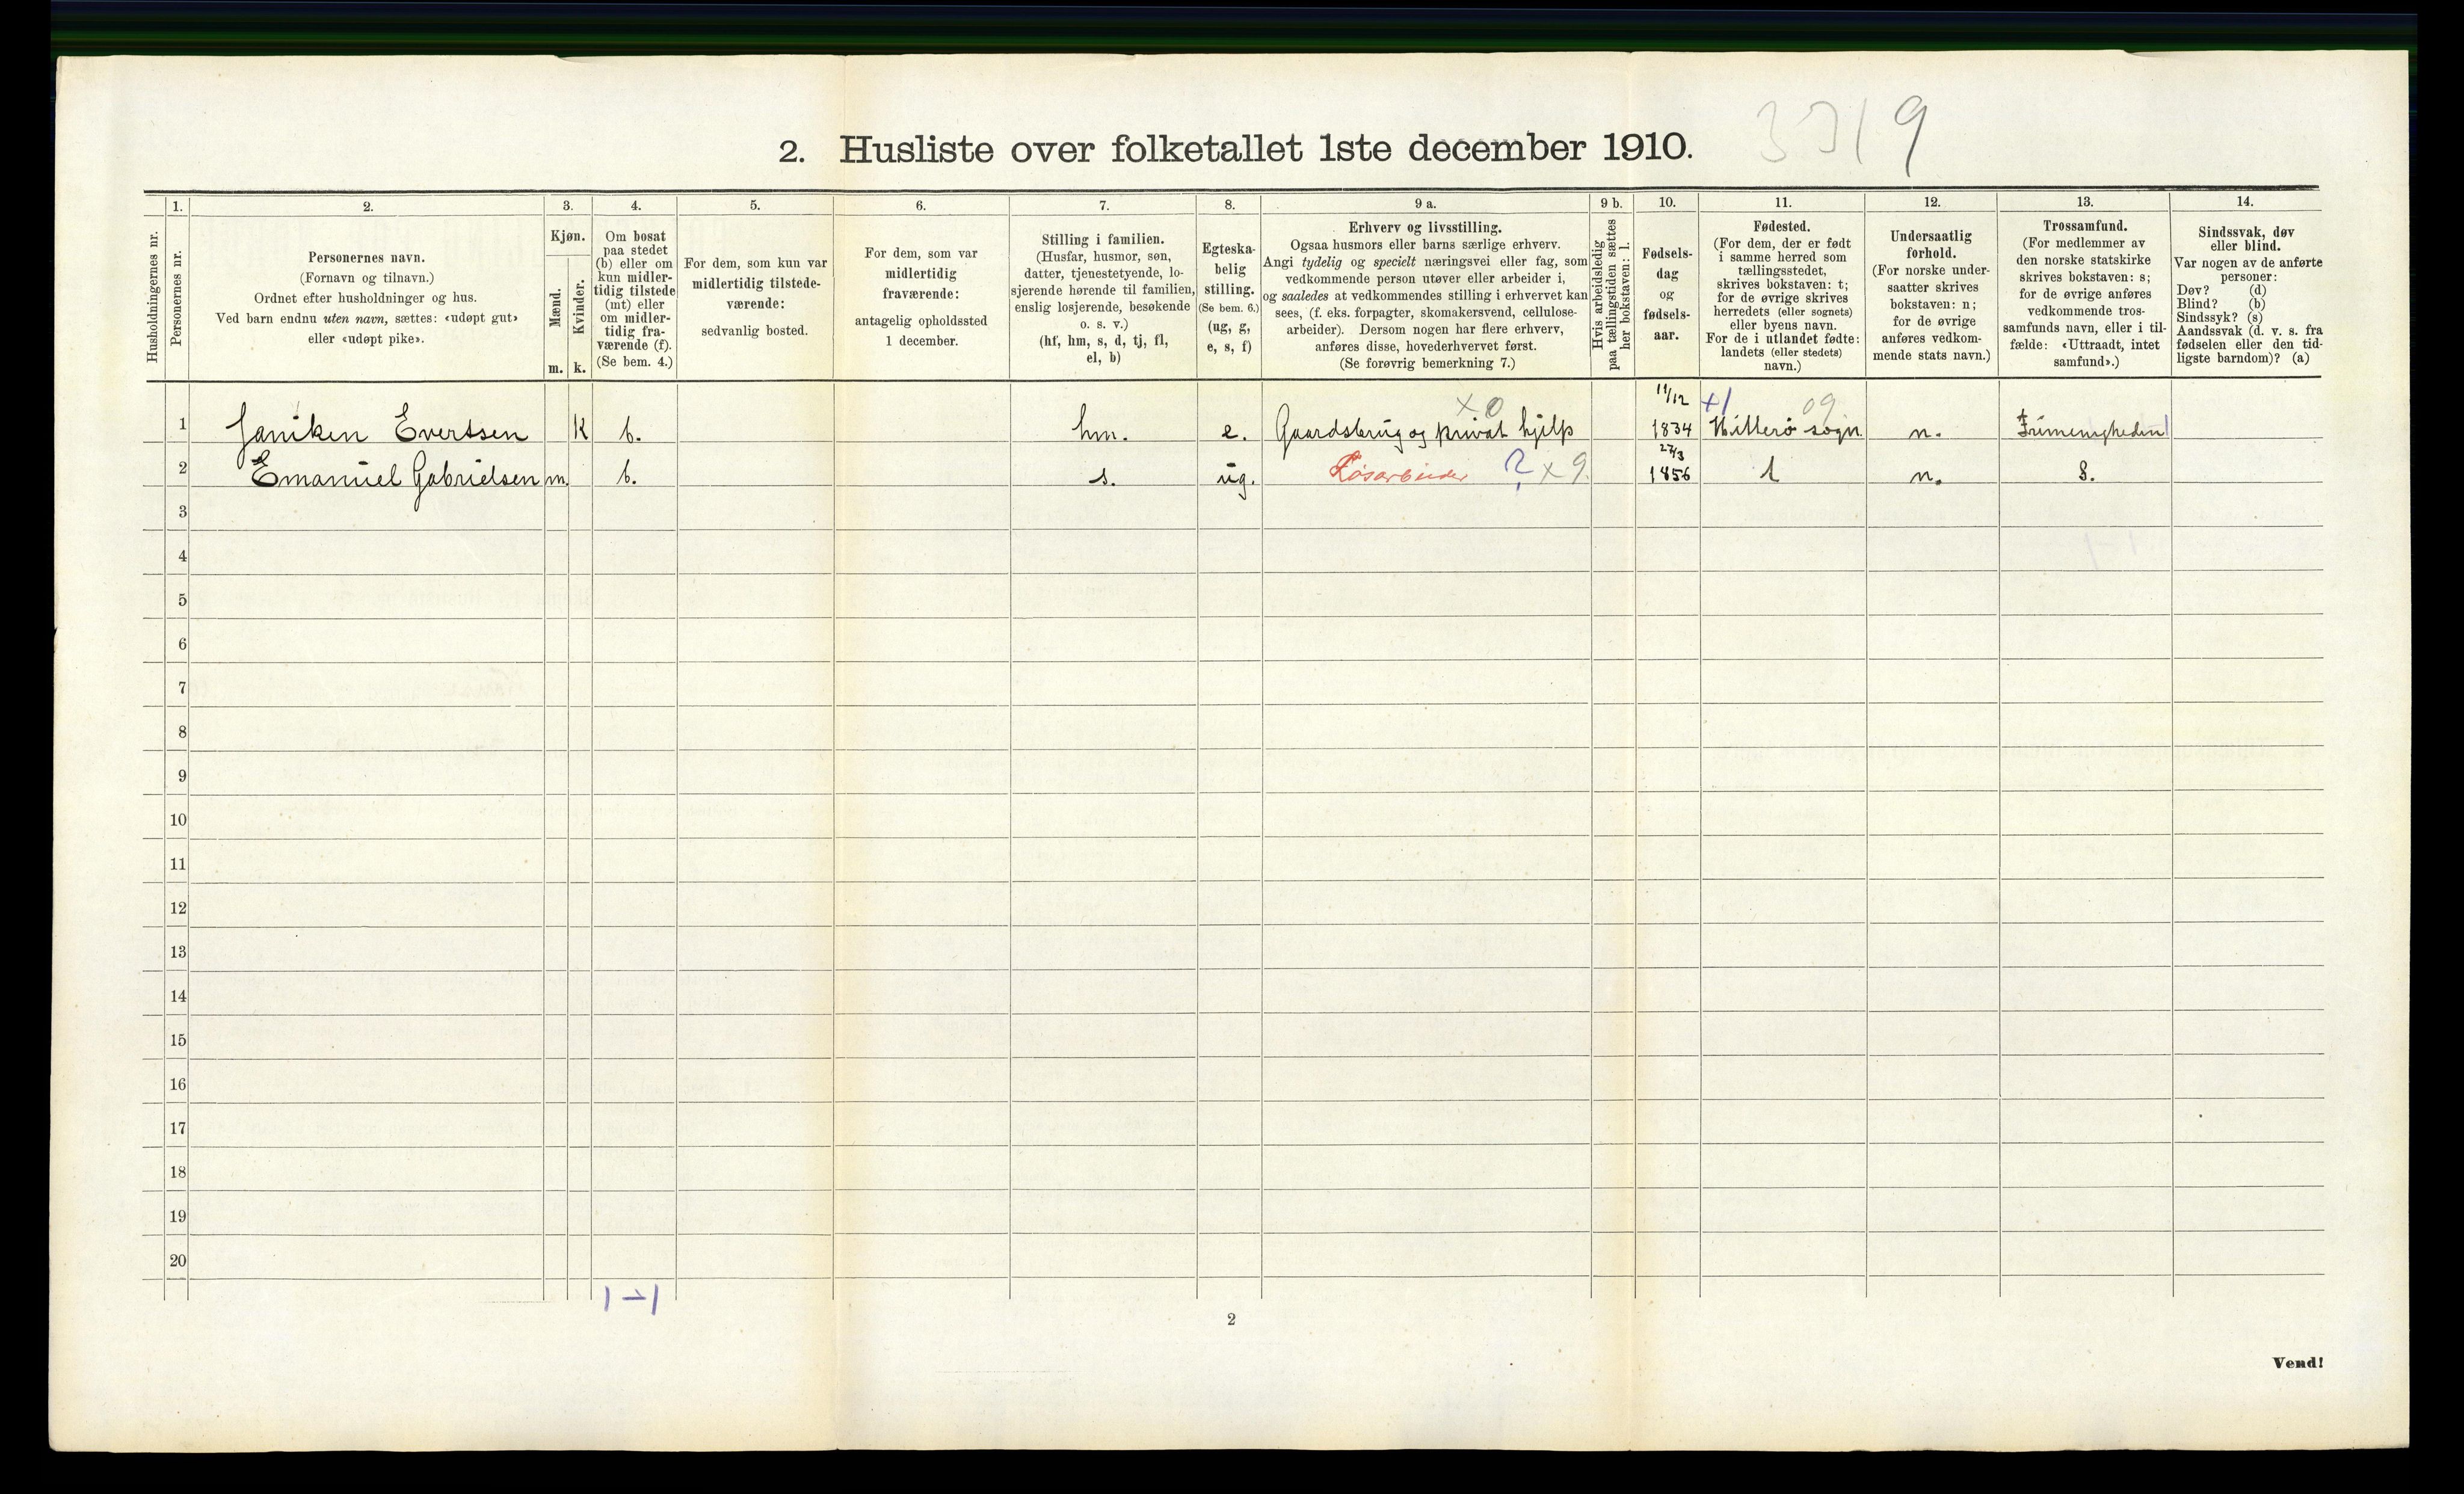 3319
2. Husliste over folketallet 1ste december 1910.
Husholdningernes nr.
1.
Personernes nr.
2.
Personernes navn.
(Fornavn og tilnavn.)
Ordnet efter husholdninger og hus.
Ved barn endnu uten navn, sættes: «udøpt gut»
eller «udøpt pike».
3.
Kjøn.
Mænd.
Kvinder.
m. k.
4.
Om bosat
paa stedet
(b) eller om
kun midler-
tidig tilstede
(mt) eller
om midler-
tidig fra-
værende (f).
(Se bem. 4.)
5.
For dem, som kun var
midlertidig tilstede-
værende:
sedvanlig bosted.
6.
For dem, som var
midlertidig
fraværende:
antagelig opholdssted
1 december.
7.
Stilling i familien.
(Husfar, husmor, søn,
datter, tjenestetyende, lo-
sjerende hørende til familien,
enslig losjerende, besøkende
o. s. v.)
(hf, hm, s, d, tj, fl,
el, b)
8.
Egteska-
belig
stilling.
(Se bem. 6.)
(ug, g,
e, s, f)
9 a.
Erhverv og livsstilling.
Ogsaa husmors eller barns særlige erhverv.
Angi tydelig og specielt næringsvei eller fag, som
vedkommende person utøver eller arbeider i,
og saaledes at vedkommendes stilling i erhvervet kan
sees, (f. eks. forpagter, skomakersvend, cellulose-
arbeider). Dersom nogen har flere erhverv,
anføres disse, hovederhvervet først.
(Se forøvrig bemerkning 7.)
9 b.
Hvis arbeidsledig
paa tællingstiden sættes
her bokstaven: l.
10.
Fødsels-
dag
og
fødsels-
aar.
11.
Fødested.
(For dem, der er født
i samme herred som
tællingsstedet,
skrives bokstaven: t;
for de øvrige skrives
herredets (eller sognets)
eller byens navn.
For de i utlandet fødte:
landets (eller stedets)
navn.)
12.
Undersaatlig
forhold.
(For norske under-
saatter skrives
bokstaven: n;
for de øvrige
anføres vedkom-
mende stats navn.)
13.
Trossamfund.
(For medlemmer av
den norske statskirke
skrives bokstaven: s;
for de øvrige anføres
vedkommende tros-
samfunds navn, eller i til-
fælde: «Uttraadt, intet
samfund».)
14.
Sindssvak, døv
eller blind.
Var nogen av de anførte
personer:
Døv? (d)
Blind? (b)
Sindssyk? (s)
Aandssvak (d. v. s. fra
fødselen eller den tid-
ligste barndom)? (a)
x 0 11/12 +1 09
1 Janiken Evertsen K b. hm. e. Gaardsbrug og privat hjelp 1834 Hitterø sogn n. Frimenigheden
27/3
2 Emanuel Gabrielsen m. b. s. ug. Løsarbeider ? x 9. 1856 t n. S.
3
4
5
6
7
8
9
10
11
12
13
14
15
16
17
18
19
20
1-1
2
Vend!